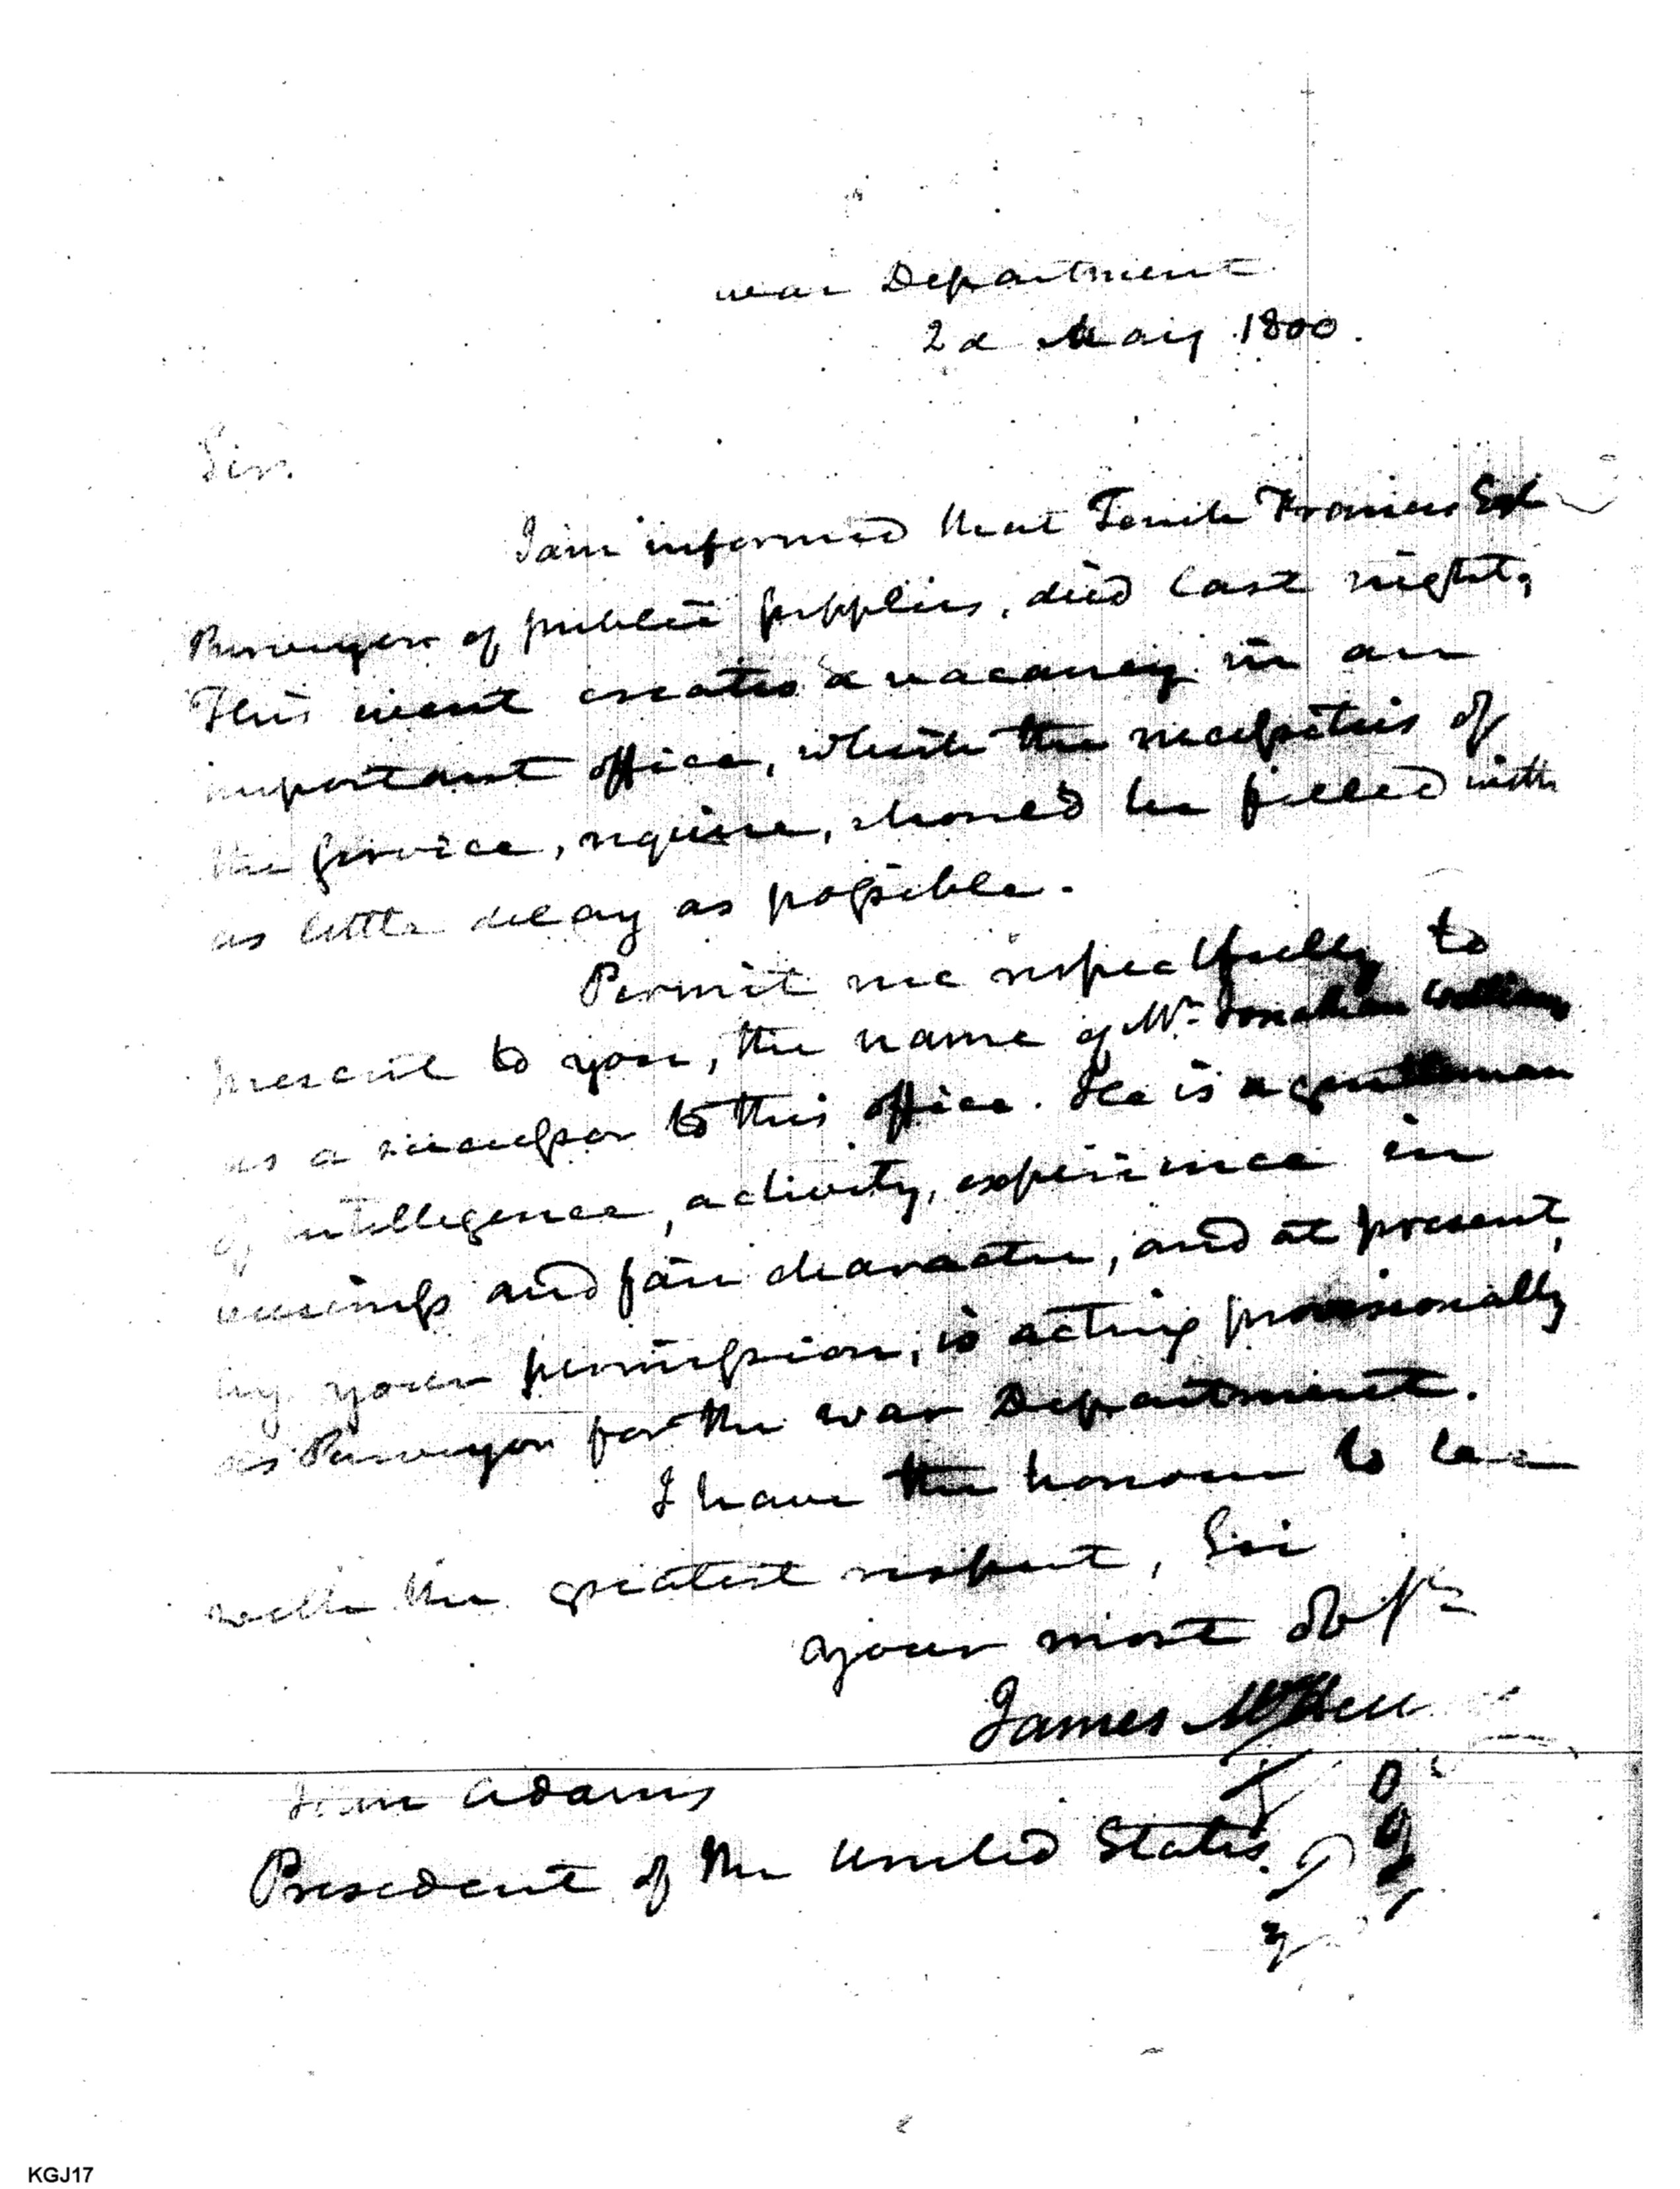 war Department
2d May 1800.
Sir.
I am informed that Tench Francis Esqr
Purveyor of public supplies, died last night,
This event creates a vacancy in an
important office, which the necessities of
the service, require, should be filled with
as little delay as possible.
Permit me respectfully to
present to you, the name of Mr. Jonathan Williams
as a successor to this office. He is a gentleman
of intelligence, activity, experience in
business and fair character, and at present,
by your permission, is acting provisionally
as Purveyor for the war Department.
I have the honour to be
with the greatest respect, Sir
your most
James McHenry
John Adams
President of the United States.
KGJ17